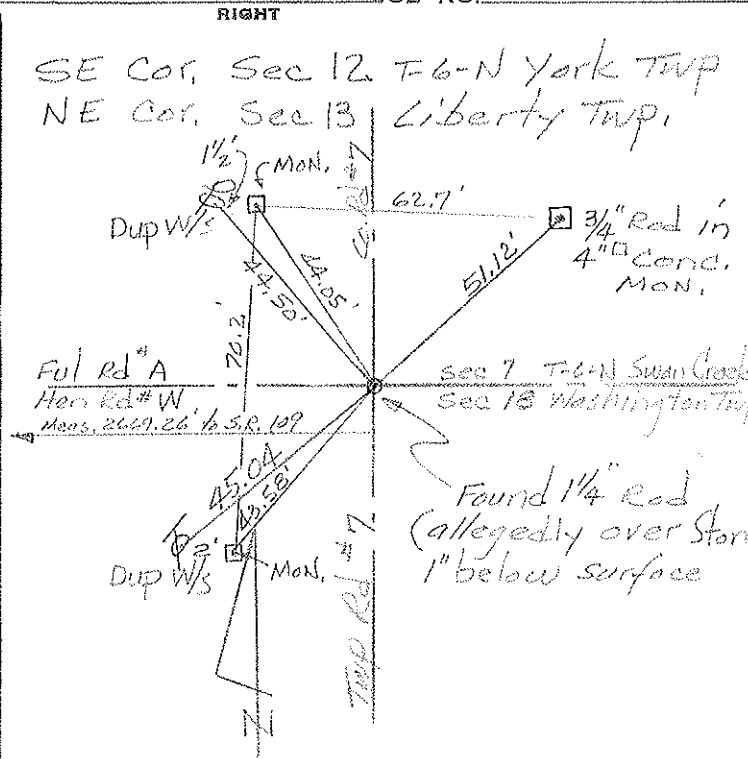 RIGHT
SE Cor. Sec 12 T-6-N York Twp
NE Cor. Sec 13 Liberty Twp.
1½'
MON.
Dup W/s
62.7'
3/4" Rod in
4"□ Conc.
MON.
Rd #7
44.50'
44.05'
51.12'
70.2'
Ful Rd #A
Hen Rd #W
Meas. 2669.26' to S.R. 109
sec 7 T-6-N Swan Creek
Sec 18 Washington Twp
45.04
43.58'
2'
Dup W/s
MON.
Twp Rd #7
Found 1¼" Rod
(allegedly over Ston
1" below surface
N